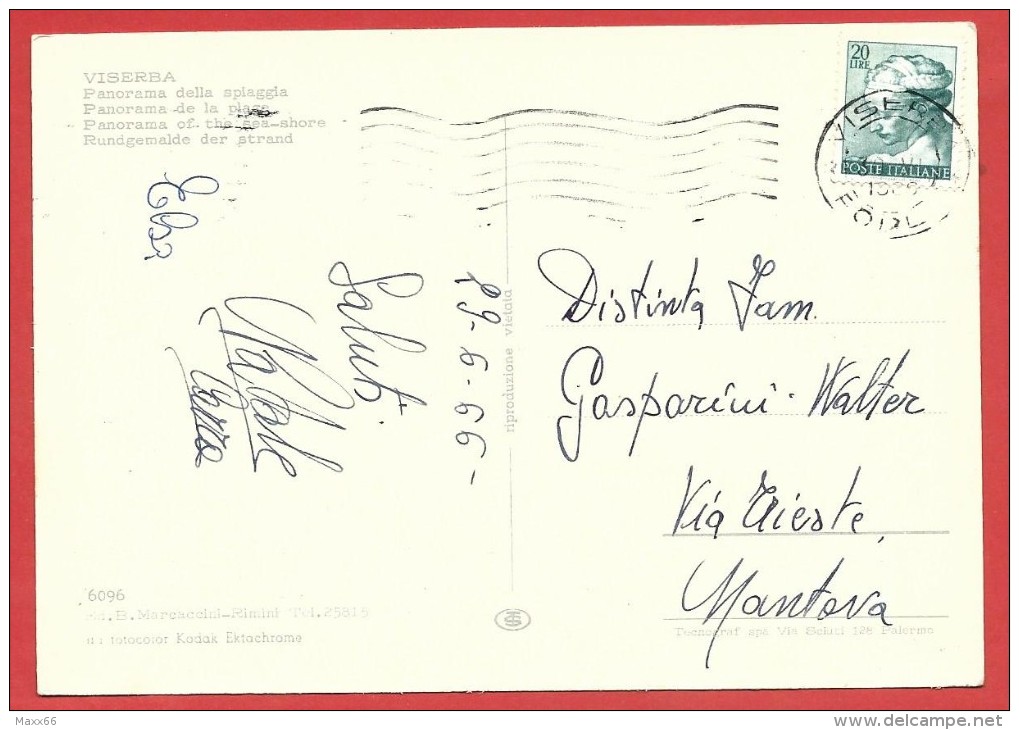 VISERBA
Panorama della spiaggia
Panorama de la plage
Panorama of the sea-shore
Rundgemalde der strand
20
LIRE
POSTE ITALIANE
VISERBA
29-6-66-
Saluti
riproduzione vietata
Distinta Fam.
Gasparini-Walter
Via Trieste
Mantova
6096
B. Marcaccini-Rimini Tel. 25815
fotocolor Kodak Ektachrome
Tecnograf spa Via Sciuti 128 Palermo
Maxx66
www.delcampe.net